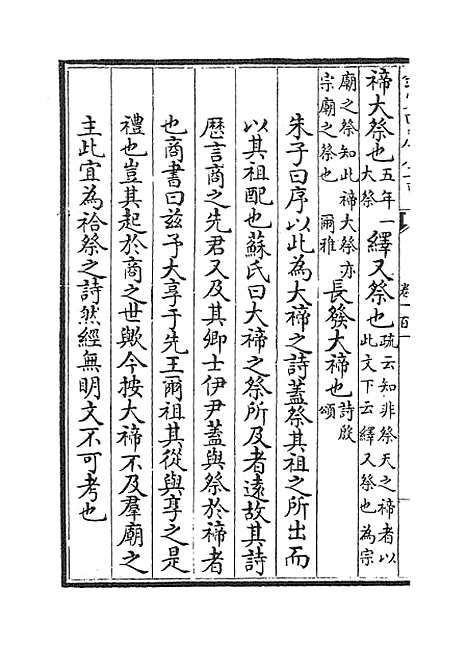 卷一百一
禘大祭也五年一大祭繹又祭也疏云知非祭天之禘者以此文下云繹又祭也為宗
廟之祭知此禘大祭亦宗廟之祭也爾雅長發大禘也詩殷頌
朱子曰序以此為大禘之詩蓋祭其祖之所出而
以其祖配也蘇氏曰大禘之祭所及者遠故其詩
歴言商之先君又及其卿士伊尹蓋與祭於禘者
也商書曰兹予大享于先王爾祖其從與享之是
禮也豈其起於商之世歟今按大禘不及羣廟之
主此宜為祫祭之詩然經無明文不可考也